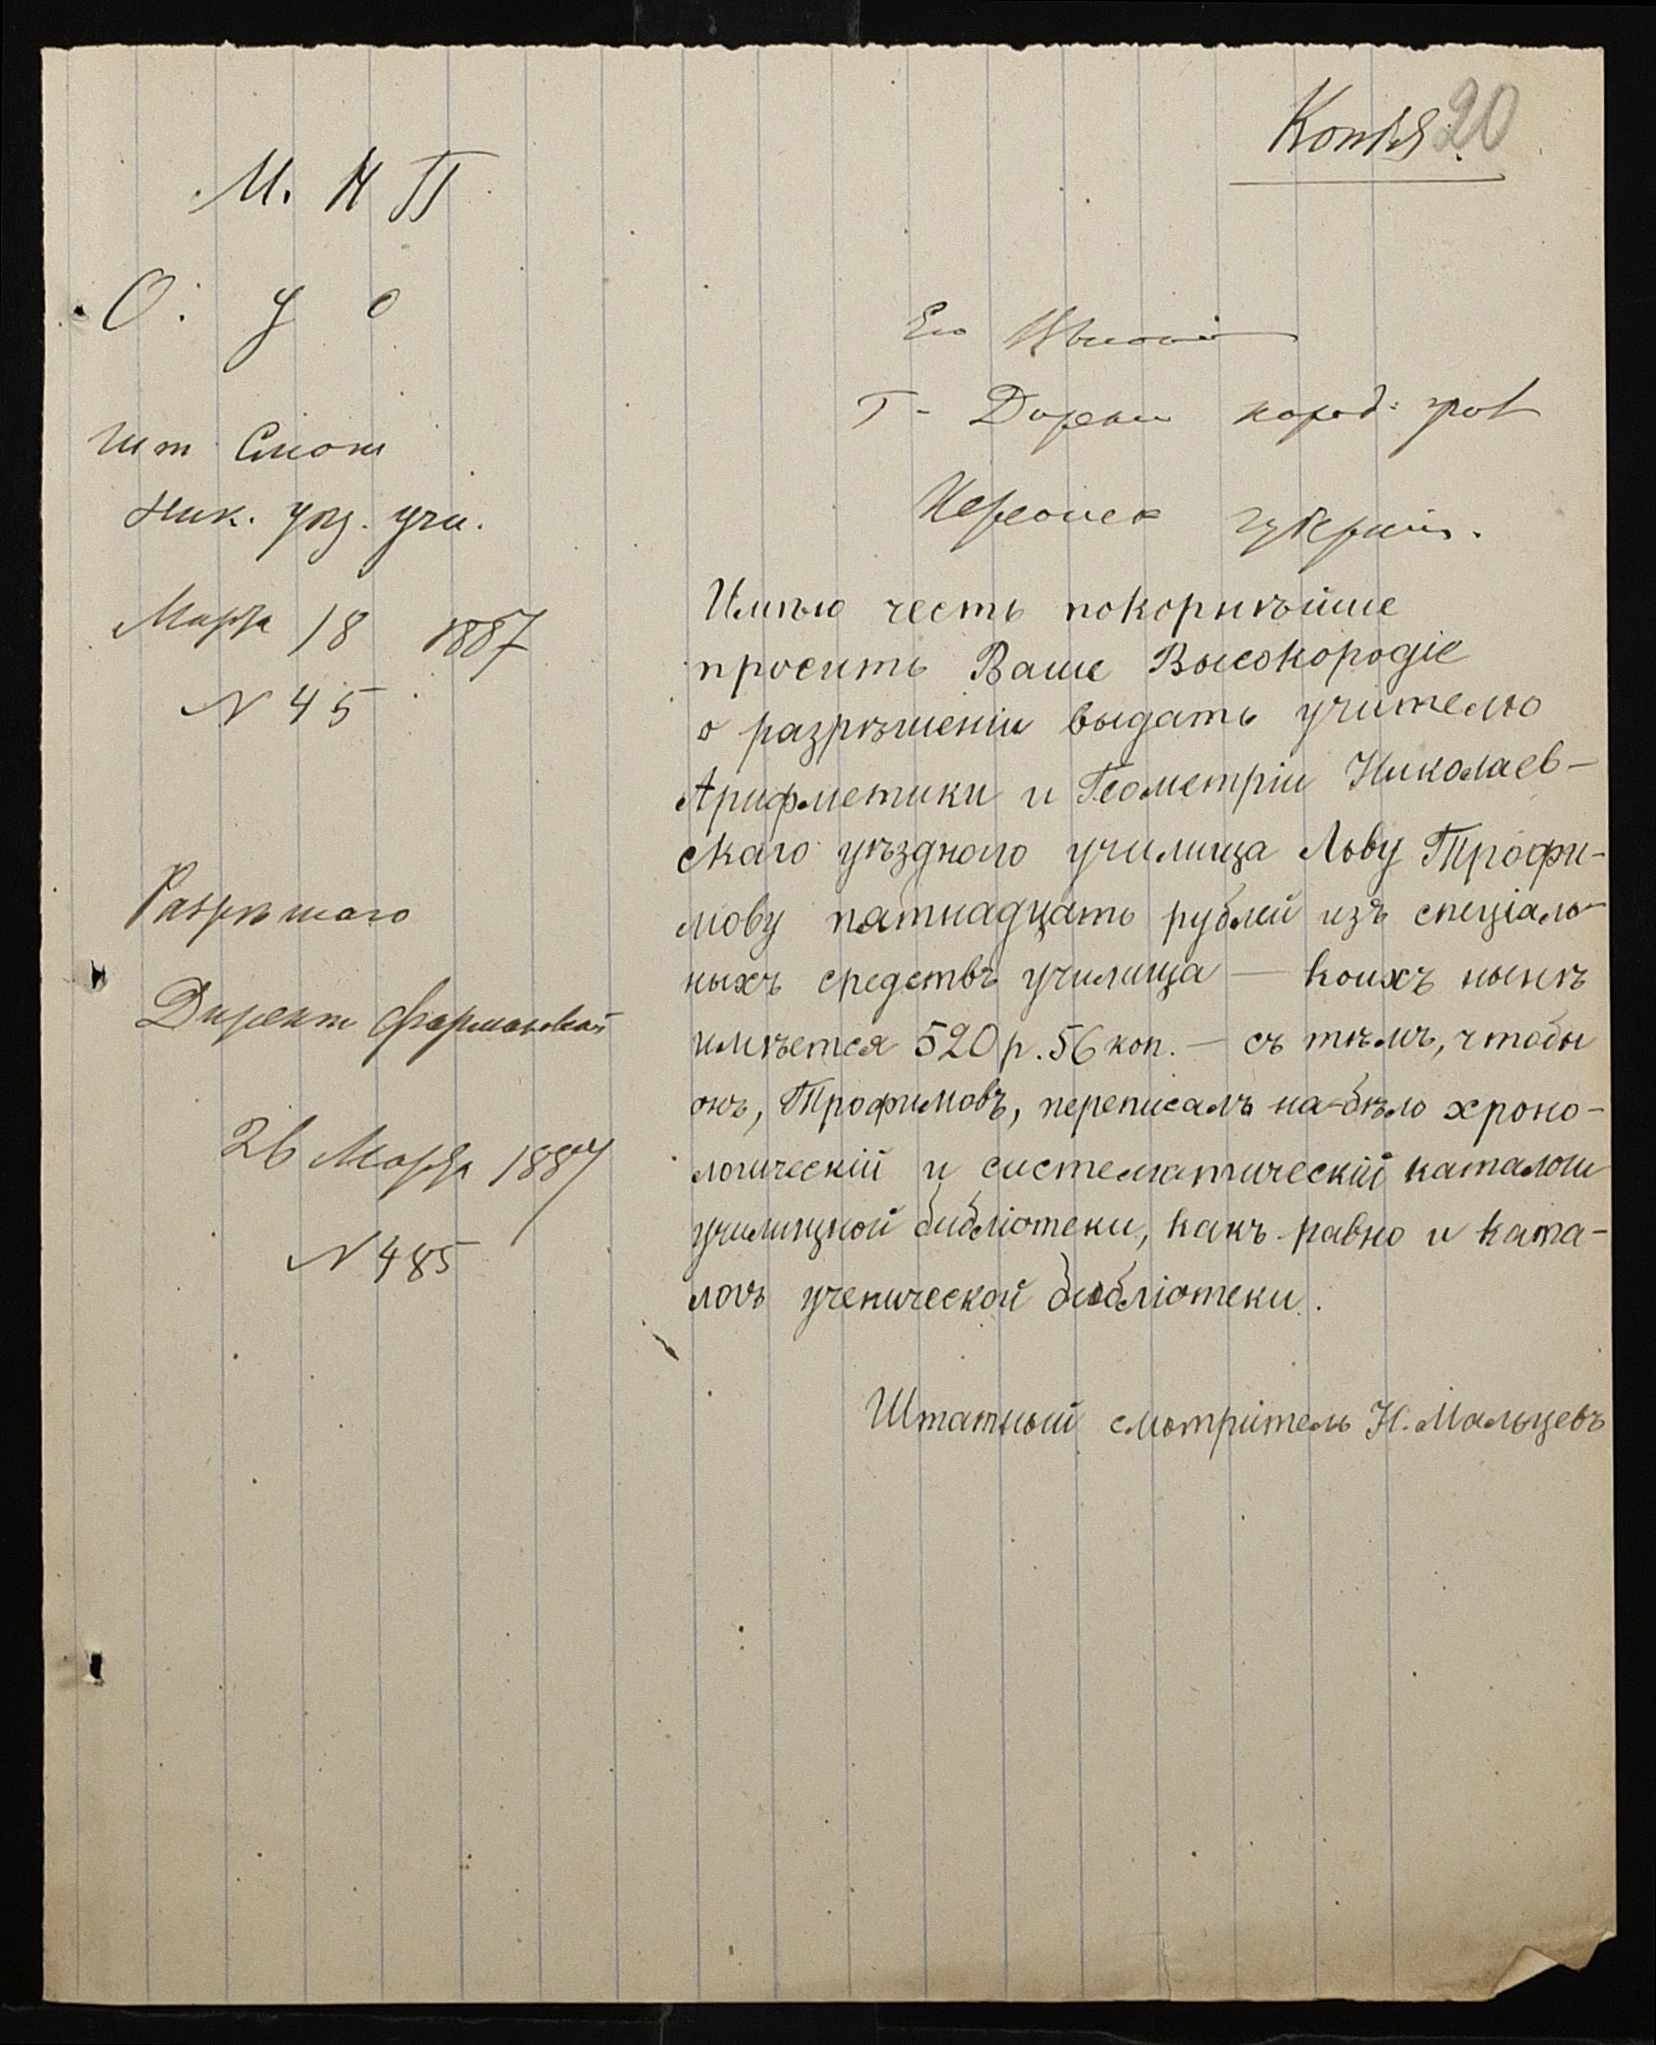 Копія. 20
М. Н П
О. У О
Шт Смот
Ник. уѣз. учи.
Марта 18 1887
N 45
Разрѣшаю
Директ
26 Марта 1887
N 485
Его
Г- Дирек народ: учил
Херсонск губерніи.
Имѣю честь покорнѣйше
просить Ваше Высокородіе
о разрѣшеніи выдать учителю
Арифметики и Геометріи Николаев-
скаго уѣзднаго училища Льву Трофи-
мову пятнадцать рублей изъ спеціаль-
ныхъ средствъ училища — коихъ нынѣ
имѣется 520 р. 56 коп. — съ тѣмъ, чтобы
онъ, Трофимовъ, переписалъ на-бѣло хроно-
логическій и систематическій каталоги
училищной библіотеки, какъ равно и ката-
логъ ученической библіотеки.
Штатный смотритель Н. Мальцевъ